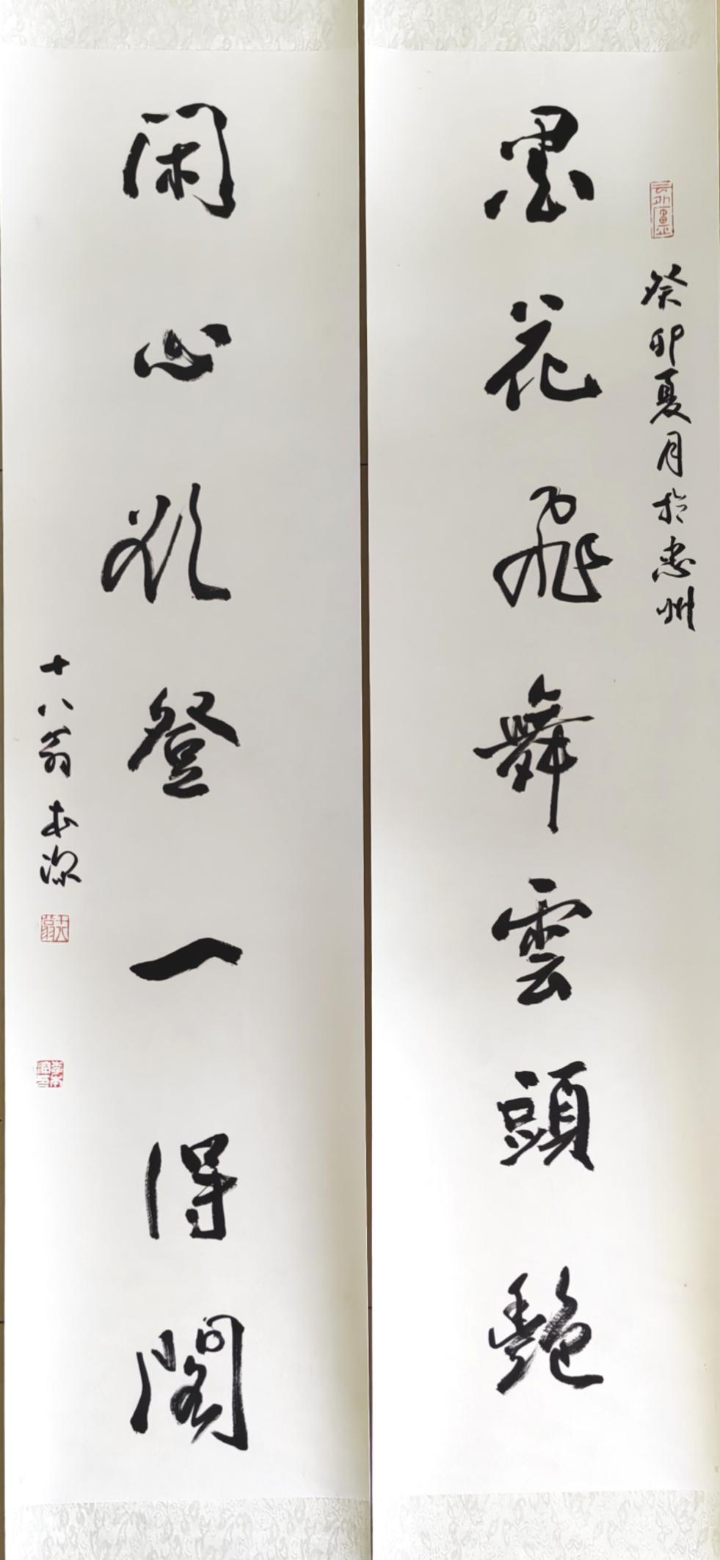 癸卯夏月於惠州
墨花飛舞雲頭艷
閑心欲登一得閣
十八翁本深